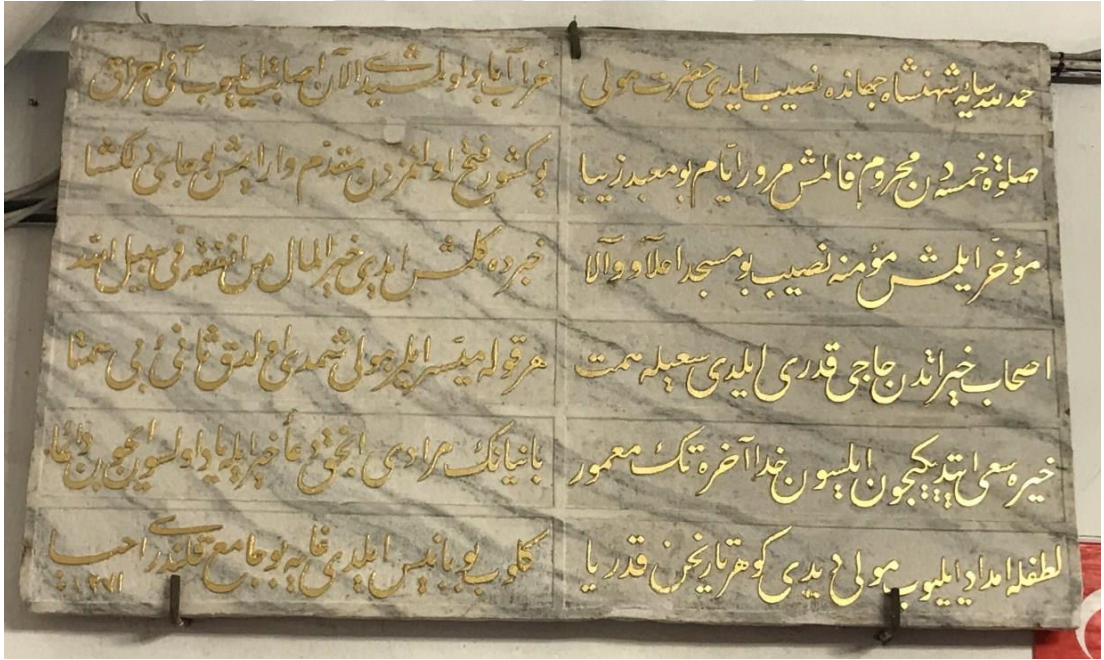 حمدلله سایهٔ شهنشاه جهانده نصیب ایلدی حضرت مولی
خراب آباد اولمشیدی الآن اصابت ایلیوب
صلوة خمسه دن محروم قالمش مرور ایام بو معبد زیبا
بو کشور فتح اولنمزدن مقدم وار ایمش بو جای دلکشا
مؤخر ایلمش مؤمنه نصیب بو مسجد اعلا و والا
خبرده کلمش ایدی خیر المال من انفقه فی سبیل الله
اصحاب خیراتدن حاجی قدری ایلدی سعیله همت
هر قوله میسر ایلر مولی شمدی اولدق ثانئ بی همتا
خیره سعی ایتدیکیچون ایلسون خدا آخره تک معمور
بانیانک مرادی انجق دعا خیرله یاد اولسون ایچون دائما
لطفله امداد ایلیوب مولی دیدی کوهر تاریخن قدریا
کلوب بو ایلدی بو جامع قلندری احیا
١٢٧١